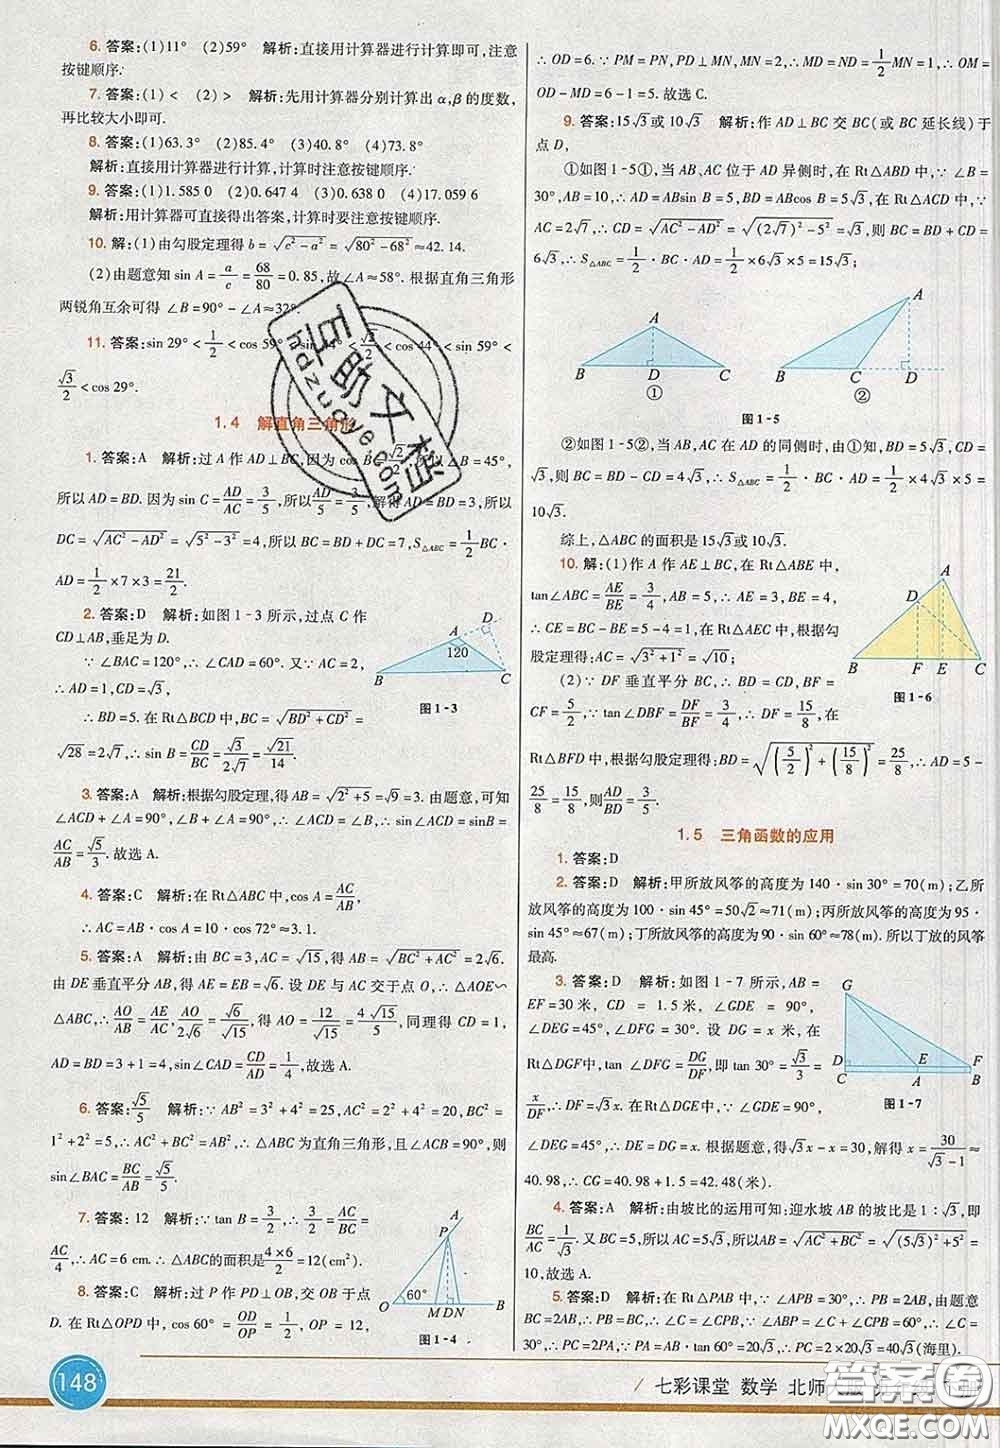 6. 答案:(1)11° (2)59° 解析:直接用计算器进行计算即可,注意
按键顺序.
7. 答案:(1)< (2)> 解析:先用计算器分别计算出 α,β 的度数,
再比较大小即可.
8. 答案:(1)63.3° (2)85.4° (3)40.8° (4)73.8°
解析:直接用计算器进行计算,计算时注意按键顺序.
9. 答案:(1)1.585 0 (2)0.647 4 (3)0.638 0 (4)17.059 6
解析:用计算器可直接得出答案,计算时要注意按键顺序.
10. 解:(1)由勾股定理得 b=√(c²-a²)=√(80²-68²)≈42.14.
(2)由题意知 sin A=a/c=68/80=0.85,故∠A≈58°. 根据直角三角形
两锐角互余可得 ∠B=90°-∠A≈32°.
11. 答案:sin 29°<1/2<cos 59°<sin 44°<√2/2<cos 44°<sin 59°<
√3/2<cos 29°.
1.4 解直角三角形
1. 答案:A 解析:过 A 作 AD⊥BC,因为 cos B=√2/2,∠B=45°,
所以 AD=BD. 因为 sin C=AD/AC=3/5,所以AD/5=3/5,解得 AD=BD=3,所以
DC=√(AC²-AD²)=√(5²-3²)=4,所以 BC=BD+DC=7,S△ABC=1/2BC·
AD=1/2×7×3=21/2.
2. 答案:D 解析:如图 1-3 所示,过点 C 作
CD⊥AB,垂足为 D.
∵ ∠BAC=120°,∴ ∠CAD=60°. 又∵ AC=2,
∴ AD=1,CD=√3,
∴ BD=5. 在 Rt△BCD 中,BC=√(BD²+CD²)=
√28=2√7,∴ sin B=CD/BC=√3/(2√7)=√21/14.
A
D
120
B
C
图 1-3
3. 答案:A 解析:根据勾股定理,得 AB=√(2²+5)=√9=3. 由题意,可知
∠ACD+∠A=90°,∠B+∠A=90°,∴ ∠ACD=∠B,∴ sin∠ACD=sinB=
AC/AB=√5/3.故选 A.
4. 答案:C 解析:在 Rt△ABC 中,cos A=AC/AB,
∴ AC=AB·cos A=10·cos 72°≈3.1.
5. 答案:A 解析:由 BC=3,AC=√15,得 AB=√(BC²+AC²)=2√6.
由 DE 垂直平分 AB,得 AE=BE=√6. 设 DE 与 AC 交于点 O,∴△AOE∽
△ABC,∴ AO/AB=AE/AC,AO/(2√6)=√6/√15,得 AO=12/√15=4√15/5,同理得 CD=1,
AD=BD=3+1=4,∴ sin∠CAD=CD/AD=1/4,故选 A.
6. 答案:√5/5 解析:∵ AB²=3²+4²=25,AC²=2²+4²=20,BC²=
1²+2²=5,∴ AC²+BC²=AB²,∴ △ABC 为直角三角形,且∠ACB=90°,则
sin∠BAC=BC/AB=√5/5.
7. 答案: 12 解析:∵ tan B=3/4,∴ 3/4=AC/BC=
AC/4,∴ AC=6 cm.∴ △ABC的面积是(4×6)/2=12(cm²).
8. 答案:C 解析:过 P 作 PD⊥OB,交 OB 于点
D. 在 Rt△OPD 中,cos 60°=OD/OP=1/2,OP=12,
A
P
60°
O
M D N
B
图 1-4
∴ OD=6. ∵ PM=PN,PD⊥MN,MN=2,∴ MD=ND=1/2MN=1,∴
OM=OD-MD=6-1=5.故选 C.
9. 答案:15√3或10√3 解析:作 AD⊥BC 交 BC(或 BC 延长线)于
点 D,
①如图 1-5①,当 AB,AC 位于 AD 异侧时,在 Rt△ABD 中,∵ ∠B=
30°,AB=10,∴ AD=ABsin B=5,BD=ABcos B=5√3,在 Rt△ACD 中,∵
AC=2√7,∴ CD=√(AC²-AD²)=√((2√7)²-5²)=√3,则 BC=BD+CD=
6√3,∴ S△ABC=1/2·BC·AD=1/2×6√3×5=15√3;
A
B
D
C
①
A
B
C
D
②
图 1-5
②如图 1-5②,当 AB,AC 在 AD 的同侧时,由①知,BD=5√3,CD=
√3,则 BC=BD-CD=4√3,∴ S△ABC=1/2·BC·AD=1/2×4√3×5=
10√3.
综上,△ABC 的面积是 15√3或 10√3.
10. 解:(1)作 A 作 AE⊥BC,在 Rt△ABE 中,
tan∠ABC=AE/BE=3/4,AB=5,∴ AE=3,BE=4,
∴ CE=BC-BE=5-4=1,在 Rt△AEC 中,根据勾
股定理得:AC=√(3²+1²)=√10;
(2)∵ DF 垂直平分 BC,∴ BD=CD,BF=
CF=5/2,∵ tan∠DBF=DF/BF=3/4,∴ DF=15/8,在
Rt△BFD 中,根据勾股定理得:BD=√((5/2)²+(15/8)²)=25/8,∴ AD=5-
25/8=15/8,则AD/BD=3/5.
A
D
B
F E
C
图 1-6
1.5 三角函数的应用
1. 答案:D
2. 答案:D 解析:甲所放风筝的高度为 140·sin 30°=70(m);乙所
放风筝的高度为 100·sin 45°=50√2≈71(m);丙所放风筝的高度为 95·
sin 45°≈67(m);丁所放风筝的高度为 90·sin 60°≈78(m).所以丁放的风筝
最高.
3. 答案:D 解析:如图 1-7 所示,AB=
EF=30 米,CD=1.5 米,∠GDE=90°,
∠DEG=45°,∠DFG=30°. 设 DG=x 米,在
Rt△DGF中,tan ∠DFG=DG/DF,即 tan 30°=√3/3=
x/DF,∴ DF=√3x. 在 Rt△DGE中,∵ ∠GDE=90°,
∠DEG=45°,∴ DE=DG=x. 根据题意,得√3x-x=30,解得 x=30/(√3-1)≈
40.98,∴ CG=40.98+1.5=42.48(米).
G
D
E
F
C
A
B
图 1-7
4. 答案:A 解析:由坡比的运用可知:迎水坡 AB 的坡比是 1:√3,即
BC/AC=1/√3. 又 BC=5,∴ AC=5√3,∴ AB=√(AC²+BC²)=√((5√3)²+5²)=
10,故选 A.
5. 答案:D 解析:在 Rt△PAB 中,∵ ∠APB=30°,∴ PB=2AB,由题意
BC=2AB,∴ PB=BC,∴ ∠C=∠CPB,∵ ∠ABP=∠C+∠CPB=60°,∴ ∠C=
30°,∴ PC=2PA,∵ PA=AB·tan 60°=20√3,∴ PC=2×20√3=40√3(海里).
148
七彩课堂 数学 北师
百助文档
hdzuoye.com
答案圈
MXQE.COM